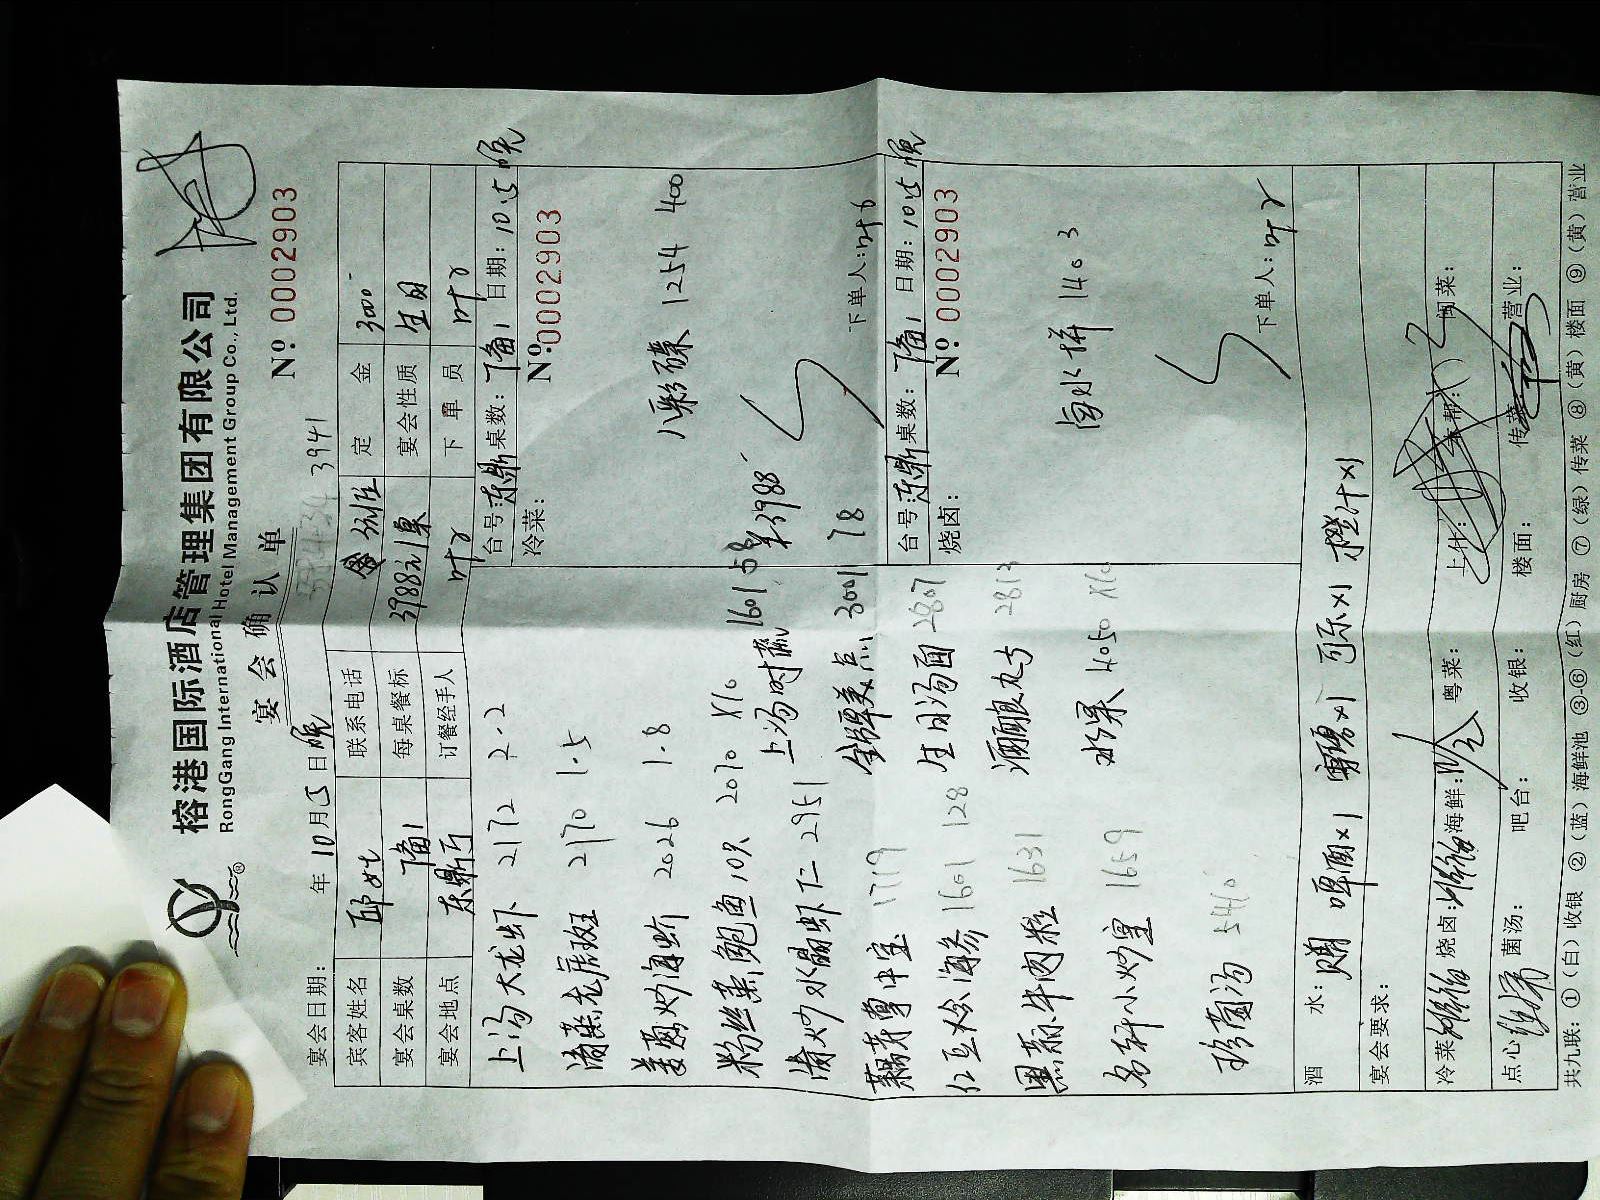 榕港国际酒店管理集团有限公司
RongGang International Hotel Management Group Co., Ltd.
宴会确认单
3941
宴会日期: 年 10月5日晚
Nº: 0002903
宾客姓名 邱女士 联系电话 定金 300
宴会桌数 1备1 每桌餐标 3988元/桌 宴会性质 生日
宴会地点 东鼎厅 订餐经手人 下单员
台号: 东鼎 桌数: 1备1 日期: 10.5晚
冷菜:
Nº: 0002903
八彩碟 1254 400
下单人:
上汤大龙虾 2172 2.2
清蒸龙虎斑 2170 1.5
姜葱炒海虾 2026 1.8
粉丝蒸鲍鱼10只 2070 X10
清炒水晶虾仁 2951
1719
红豆众海参 1601 128
黑椒牛肉粒 1631
小炒皇 1659
珍菌汤 5410
上汤时蔬 1601 58
单3988
美点 3001 78
生日汤面 2807
酒酿丸子 2813
水果 4050 X10
台号: 东鼎 桌数: 1备1 日期: 10.5晚
烧卤:
Nº: 0002903
卤水拼 1403
下单人:
酒水: 赠 啤酒X1 雪碧X1 可乐X1 橙汁X1
宴会要求:
冷菜 烧卤: 海鲜: 粤菜: 上什: 本帮: 闽菜:
点心 菌汤: 吧台: 收银: 楼面: 传菜: 营业:
共九联: ①(白)收银 ②(蓝)海鲜池 ③-⑥(红)厨房 ⑦(绿)传菜 ⑧(黄)楼面 ⑨(黄)营业